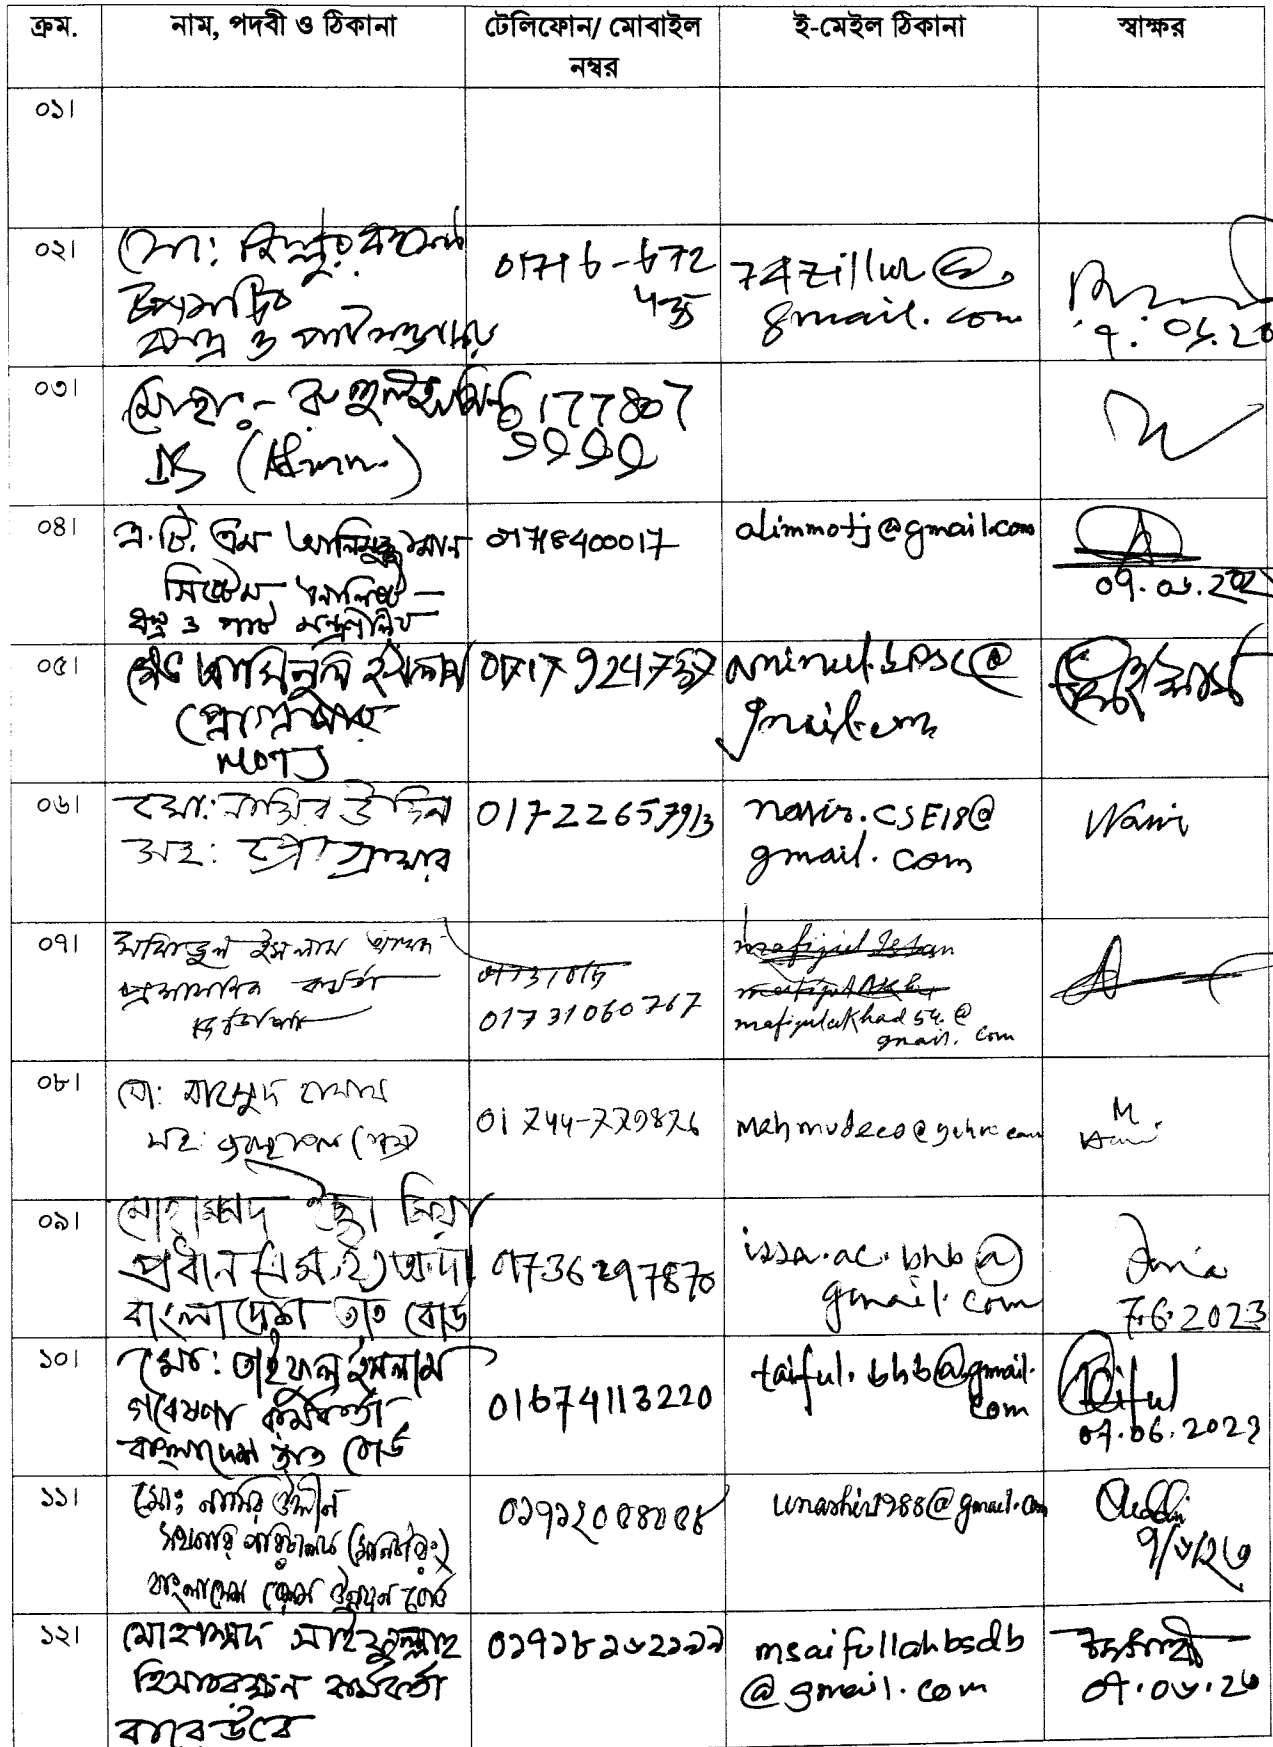 ক্রম. নাম, পদবী ও ঠিকানা টেলিফোন/ মোবাইল নম্বর ই-মেইল ঠিকানা স্বাক্ষর
০১।
০২। মো: জিল্লুর রহমান
উপসচিব
বস্ত্র ও পাট মন্ত্রণালয়
01716-672
74zillur@
gmail.com
০৩। মোহা:- রুহুল আমিন
DS (Admn.)
0177807
৯৯৯৯
০৪। এ.টি.এম আলিমুজ্জামান
সিস্টেম এনালিস্ট
বস্ত্র ও পাট মন্ত্রণালয়
01718400017
alimmotj@gmail.com
০৫। মোঃ আমিনুল ইসলাম
প্রোগ্রামার
MOTJ
aminul.bpsc@
gmail.com
০৬। মো: নাসির উদ্দিন
সহ: প্রোগ্রামার
01722657913
nasir.CSE18@
gmail.com
Nasir
০৭। মফিজুল ইসলাম
প্রশাসনিক কর্মকর্তা
01731060767
mafizulakhad54@
gmail.com
০৮। মো: মাহমুদ
সহ:
01744-779876
mahmudeco@yahoo.com
০৯। মোহাম্মদ ইছা মিয়া
প্রধান (এম.ই) অ:দা:
বাংলাদেশ তাঁত বোর্ড
01736297870
issa.ac.bhb@
gmail.com
7.6.2023
১০। মোঃ তাইফুল ইসলাম
গবেষণা কর্মকর্তা
বাংলাদেশ তাঁত বোর্ড
01674113220
taiful.bhb@gmail.
com
Taiful
07.06.2023
১১। মোঃ নাসির উদ্দীন
সহকারি পরিচালক (মনিটরিং)
বাংলাদেশ রেশম উন্নয়ন বোর্ড
unashir1988@gmail.com
৭/৬/২৩
১২। মোহাম্মদ সাইফুল্লাহ
হিসাবরক্ষন কর্মকর্তা
বারেউবো
msaifullahbsdb
@gmail.com
০৭.০৬.২৩